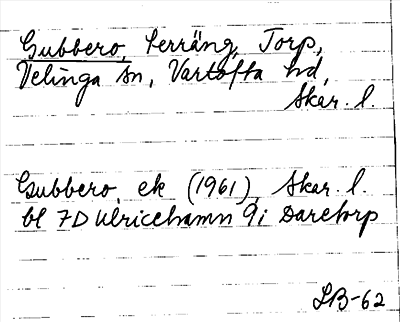 Gubbero, terräng, Torp,
Velinga sn, Vartofta hd,
Skar. l.
Gubbero, ek (1961), Skar. l.
bl 7D Ulricehamn 9i Daretorp
LB-62